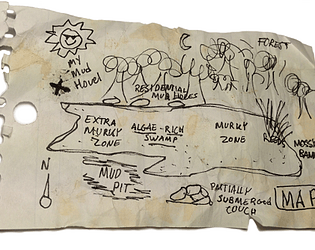 FOREST
MY
MUD
HOVEL
RESIDENTIAL
MUD HOLES
EXTRA
MURKY
ZONE
ALGAE-RICH
SWAMP
MURKY
ZONE
REEDS
MOSSY
BANK
N
MUD
PIT
PARTIALLY
SUBMERGED
COUCH
MAP